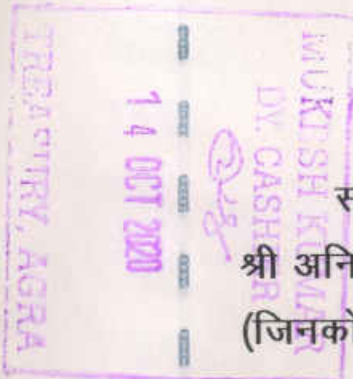 TREASURY, AGRA
14 OCT 2020
MUKISH KUMAR
DY. CASHIER
श्री